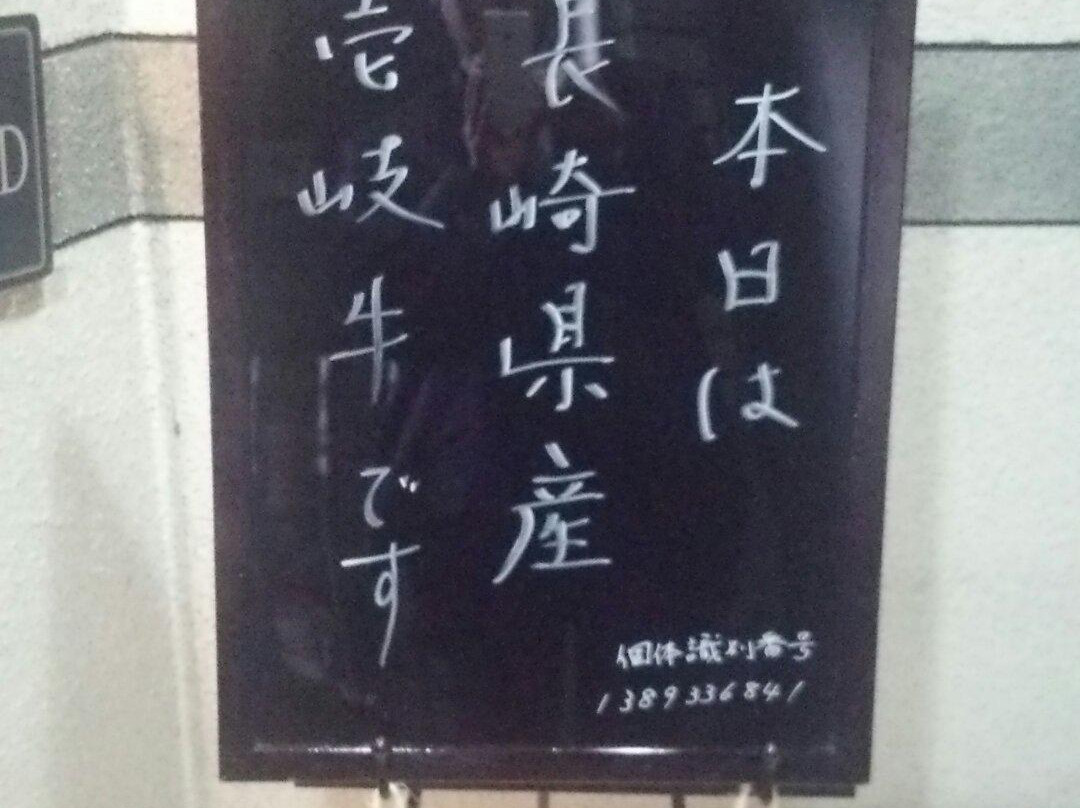 本日は
長崎県産
壱岐牛です
個体識別番号
1389336841
D